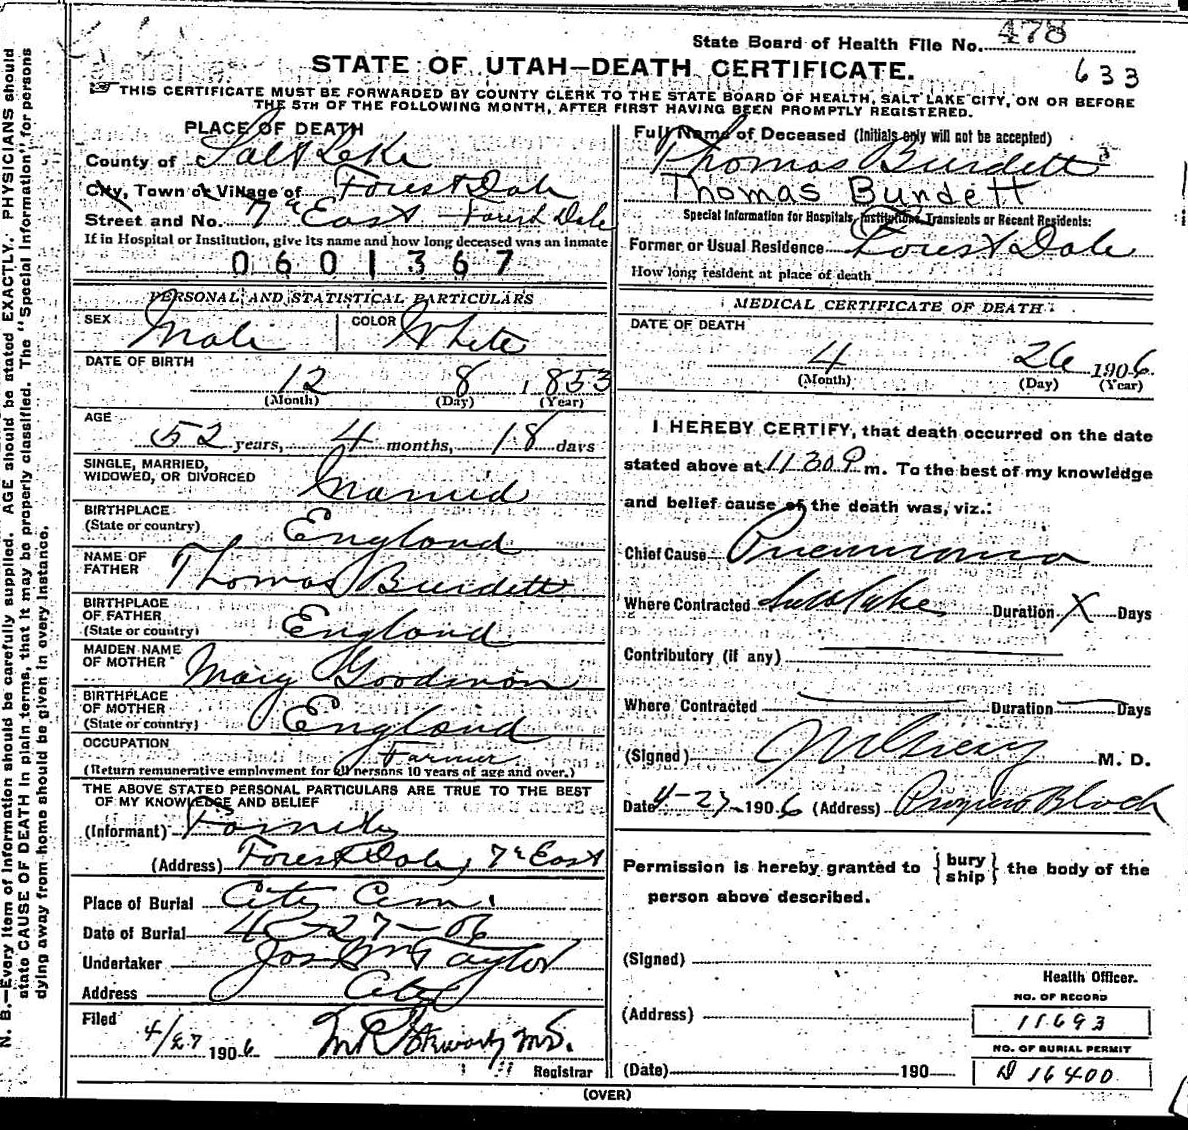 State Board of Health File No. 478
STATE OF UTAH—DEATH CERTIFICATE.
633
THIS CERTIFICATE MUST BE FORWARDED BY COUNTY CLERK TO THE STATE BOARD OF HEALTH, SALT LAKE CITY, ON OR BEFORE
THE 5TH OF THE FOLLOWING MONTH, AFTER FIRST HAVING BEEN PROMPTLY REGISTERED.
PLACE OF DEATH
County of Salt Lake
City, Town or Village of Forest Dale
Street and No. 7th East - Forest Dale
If in Hospital or Institution, give its name and how long deceased was an inmate
0601367
PERSONAL AND STATISTICAL PARTICULARS
SEX Male COLOR White
DATE OF BIRTH
12 8 1853
(Month) (Day) (Year)
AGE
52 years, 4 months, 18 days
SINGLE, MARRIED,
WIDOWED, OR DIVORCED Married
BIRTHPLACE
(State or country) England
NAME OF
FATHER Thomas Burdett
BIRTHPLACE
OF FATHER
(State or country) England
MAIDEN NAME
OF MOTHER Mary
BIRTHPLACE
OF MOTHER
(State or country) England
OCCUPATION Farmer
(Return remunerative employment for all persons 10 years of age and over.)
THE ABOVE STATED PERSONAL PARTICULARS ARE TRUE TO THE BEST
OF MY KNOWLEDGE AND BELIEF
(Informant) Family
(Address) Forest Dale, 7th East
Place of Burial City Cem.
Date of Burial 4-27-06
Undertaker Jos Wm Taylor
Address City
Filed
4/27 1906
Registrar
Full Name of Deceased (Initials only will not be accepted)
Thomas Burdett
Thomas Burdett
Special Information for Hospitals, Institutions, Transients or Recent Residents:
Former or Usual Residence Forest Dale
How long resident at place of death
MEDICAL CERTIFICATE OF DEATH
DATE OF DEATH
4 26 1906
(Month) (Day) (Year)
I HEREBY CERTIFY, that death occurred on the date
stated above at 11 30 P m. To the best of my knowledge
and belief cause of the death was, viz.:
Chief Cause Pneumonia
Where Contracted Salt Lake Duration X Days
Contributory (if any)
Where Contracted Duration Days
(Signed) M. D.
Date 4-27-1906 (Address) Progress Block
Permission is hereby granted to {bury ship} the body of the
person above described.
(Signed)
Health Officer.
(Address)
NO. OF RECORD
11693
NO. OF BURIAL PERMIT
D 16400
(Date) 190
(OVER)
N. B.—Every item of information should be carefully supplied. AGE should be stated EXACTLY. PHYSICIANS should
state CAUSE OF DEATH in plain terms, that it may be properly classified. The "Special Information" for persons
dying away from home should be given in every instance.